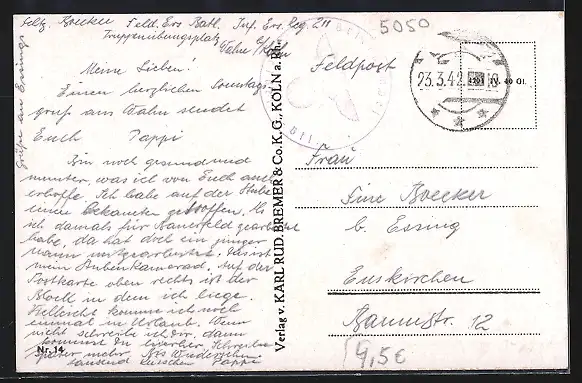 Feltz. Boecker Feld. Ers Batl. Inf. Ers. Reg. 211
Truppenübungsplatz
Wahn b/Köln
Meine Lieben!
Einen herzlichen Sonntags-
gruß aus Wahn sendet
Euch Pappi
Bin noch gesund und
munter, was ich von Euch auch
erhoffe. Ich habe auf der Stube
einen Bekannten getroffen. Als
ich damals für gearbeitet
habe, da hat doch ein junger
Mann mitgearbeitet. Das ist
mein Stubenkamerad. Auf der
Postkarte oben rechts ist der
Block in dem ich liege.
Vielleicht komme ich noch
einmal in Urlaub. Wenn
nicht schreibe ich dir, dann
kommst du hierher. Schreibe
später mehr Auf Wiedersehen
tausend Pappi
Grüße an Essings
Nr. 14
Verlag v. KARL RUD. BREMER & Co. K. G., KÖLN a. Rh.
5050
Feldpost
23.3.42
211
Frau
Fine Boecker
b. Essing
Euskirchen
Baumstr. 12
4,5€